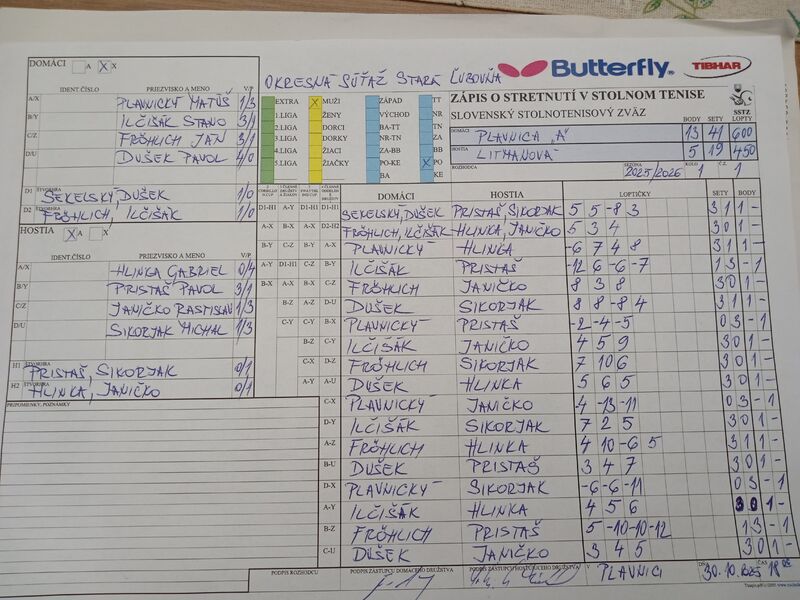 DOMÁCI A X X
IDENT. ČÍSLO PRIEZVISKO A MENO V/P
A/X PLAVNICKÝ MATÚŠ 1/3
B/Y ILČIŠÁK STANO 3/1
C/Z FRÖHLICH JÁN 3/1
D/U DUŠEK PAVOL 4/0
D1 ŠTVORHRA SEKELSKÝ, DUŠEK 1/0
D2 ŠTVORHRA FRÖHLICH, ILČIŠÁK 1/0
HOSTIA X A X
IDENT. ČÍSLO PRIEZVISKO A MENO V/P
A/X HLINKA GABRIEL 0/4
B/Y PRISTAŠ PAVOL 3/1
C/Z JANIČKO RASTISLAV 1/3
D/U SIKORJAK MICHAL 1/3
H1 ŠTVORHRA PRISTAŠ, SIKORJAK 0/1
H2 ŠTVORHRA HLINKA, JANIČKO 0/1
PRIPOMIENKY, POZNÁMKY
OKRESNÁ SÚŤAŽ STARÁ ĽUBOVŇA
Butterfly TIBHAR
ZÁPIS O STRETNUTÍ V STOLNOM TENISE
SLOVENSKÝ STOLNOTENISOVÝ ZVÄZ
SSTZ
EXTRA X MUŽI ZÁPAD TT
1.LIGA ŽENY VÝCHOD NR
2.LIGA DORCI BA-TT TN
3.LIGA DORKY NR-TN ZA
4.LIGA ŽIACI ZA-BB BB
5.LIGA ŽIAČKY PO-KE X PO
BA KE
BODY SETY LOPTY
DOMÁCI PLAVNICA "A" 13 41 600
HOSTIA LITMANOVÁ 5 19 450
ROZHODCA SEZÓNA 2025/2026 KOLO 1 Č. 1
DOMÁCI HOSTIA LOPTIČKY SETY BODY
D1-H1 A-Y D1-H1 D1-H1 SEKELSKÝ, DUŠEK PRISTAŠ, SIKORJAK 5 5 -8 3 3 1 1 -
A-X B-X A-X D2-H2 FRÖHLICH, ILČIŠÁK HLINKA, JANIČKO 5 3 4 3 0 1 -
B-Y C-Z B-Y A-X PLAVNICKÝ HLINKA -6 7 4 8 3 1 1 -
A-Y D1-H1 C-Z B-Y ILČIŠÁK PRISTAŠ -12 6 -6 -7 1 3 - 1
B-X A-X B-X C-Z FRÖHLICH JANIČKO 8 3 8 3 0 1 -
B-Z A-Z D-U DUŠEK SIKORJAK 8 8 -8 4 3 1 1 -
C-Y C-Y B-X PLAVNICKÝ PRISTAŠ -2 -4 -5 0 3 - 1
B-Z ILČIŠÁK JANIČKO 4 5 9 3 0 1 -
C-X D-Z FRÖHLICH SIKORJAK 7 10 6 3 0 1 -
A-Y A-U DUŠEK HLINKA 5 6 5 3 0 1 -
C-X PLAVNICKÝ JANIČKO -4 -13 -11 0 3 - 1
D-Y ILČIŠÁK SIKORJAK 7 2 5 3 0 1 -
A-Z FRÖHLICH HLINKA 4 10 -6 5 3 1 1 -
B-U DUŠEK PRISTAŠ 3 4 7 3 0 1 -
D-X PLAVNICKÝ SIKORJAK -6 -6 -11 0 3 - 1
A-Y ILČIŠÁK HLINKA 4 5 6 3 0 1 -
B-Z FRÖHLICH PRISTAŠ 5 -10 -10 -12 1 3 - 1
C-U DUŠEK JANIČKO 3 4 5 3 0 1 -
PODPIS ROZHODCU PODPIS ZÁSTUPCU DOMÁCEHO DRUŽSTVA PODPIS ZÁSTUPCU HOSŤUJÚCEHO DRUŽSTVA V PLAVNICI DŇA 30.10.2025 ČAS 18